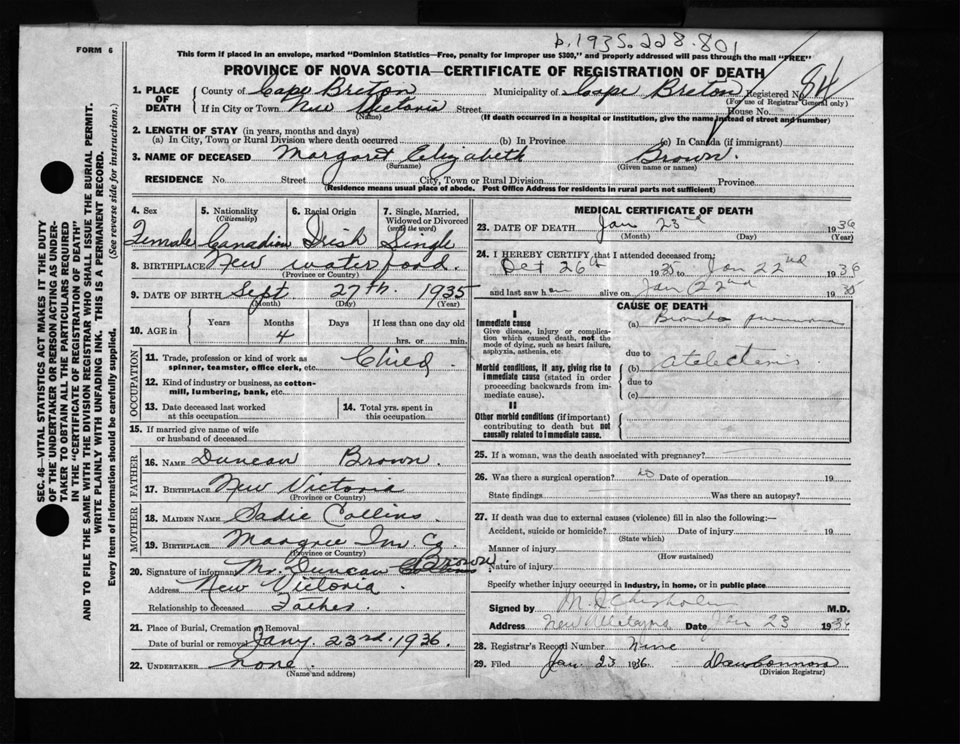 b. 1935. 228. 801
FORM 6
This form if placed in an envelope, marked "Dominion Statistics—Free, penalty for improper use $300," and properly addressed will pass through the mail "FREE"
PROVINCE OF NOVA SCOTIA—CERTIFICATE OF REGISTRATION OF DEATH
1. PLACE OF DEATH County of Cape Breton Municipality of Cape Breton Registered No. 84
(For use of Registrar General only)
If in City or Town New Victoria Street House No.
(Name) (If death occurred in a hospital or institution, give the name instead of street and number)
2. LENGTH OF STAY (in years, months and days)
(a) In City, Town or Rural Division where death occurred (b) In Province (c) In Canada (if immigrant)
3. NAME OF DECEASED Margaret Elizabeth Brown.
(Surname) (Given name or names)
RESIDENCE No. Street City, Town or Rural Division Province
(Residence means usual place of abode. Post Office Address for residents in rural parts not sufficient)
4. Sex 5. Nationality (Citizenship) 6. Racial Origin 7. Single, Married, Widowed or Divorced (write the word)
Female Canadian Irish Single
8. BIRTHPLACE New Waterford.
(Province or Country)
9. DATE OF BIRTH Sept. 27th. 1935
(Month) (Day) (Year)
10. AGE in Years Months Days If less than one day old
4 hrs. or min.
OCCUPATION
11. Trade, profession or kind of work as spinner, teamster, office clerk, etc. Child
12. Kind of industry or business, as cotton-mill, lumbering, bank, etc.
13. Date deceased last worked at this occupation
14. Total yrs. spent in this occupation
15. If married give name of wife or husband of deceased
FATHER
16. NAME Duncan Brown.
17. BIRTHPLACE New Victoria
(Province or Country)
MOTHER
18. MAIDEN NAME Sadie Collins
19. BIRTHPLACE Margree Inv. Co.
(Province or Country)
20. Signature of informant Mr. Duncan Brown.
Address New Victoria
Relationship to deceased Father.
21. Place of Burial, Cremation or Removal
Date of burial or removal Jany. 23rd. 1936
22. UNDERTAKER none.
(Name and address)
MEDICAL CERTIFICATE OF DEATH
23. DATE OF DEATH Jan 23rd 1936
(Month) (Day) (Year)
24. I HEREBY CERTIFY that I attended deceased from:
Oct 26th 1935 to Jan 22nd 1936
and last saw her alive on Jan 22nd 1935
CAUSE OF DEATH
I
Immediate cause
Give disease, injury or complication which caused death, not the mode of dying, such as heart failure, asphyxia, asthenia, etc.
(a) Broncho pneumonia
due to
Morbid conditions, if any, giving rise to immediate cause (stated in order proceeding backwards from immediate cause).
(b) atelectasis
due to
(c)
II
Other morbid conditions (if important) contributing to death but not causally related to immediate cause.
25. If a woman, was the death associated with pregnancy?
26. Was there a surgical operation? no Date of operation 19
State findings Was there an autopsy?
27. If death was due to external causes (violence) fill in also the following:—
Accident, suicide or homicide? Date of injury 19
(State which)
Manner of injury
(How sustained)
Nature of injury
Specify whether injury occurred in industry, in home, or in public place
Signed by M. D. Chisholm M.D.
Address Date Jan 23 1936
28. Registrar's Record Number Nine
29. Filed Jan. 23 1936. Dan Connors
(Division Registrar)
SEC. 46—VITAL STATISTICS ACT MAKES IT THE DUTY
OF THE UNDERTAKER OR PERSON ACTING AS UNDER-
TAKER TO OBTAIN ALL THE PARTICULARS REQUIRED
IN THE "CERTIFICATE OF REGISTRATION OF DEATH"
AND TO FILE THE SAME WITH THE DIVISION REGISTRAR WHO SHALL ISSUE THE BURIAL PERMIT.
WRITE PLAINLY WITH UNFADING INK. THIS IS A PERMANENT RECORD.
Every item of information should be carefully supplied. (See reverse side for instructions.)